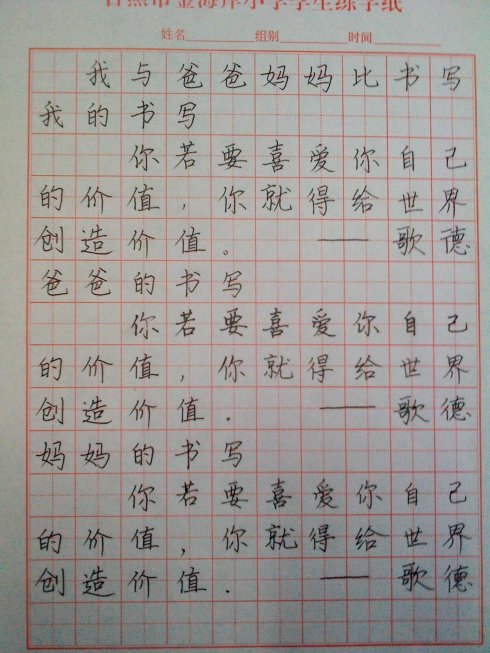 日照市金海岸小学学生练字纸
姓名 组别 时间
我与爸爸妈妈比书写
我的书写
你若要喜爱你自己
的价值，你就得给世界
创造价值。——歌德
爸爸的书写
你若要喜爱你自己
的价值，你就得给世界
创造价值.——歌德
妈妈的书写
你若要喜爱你自己
的价值，你就得给世界
创造价值.——歌德